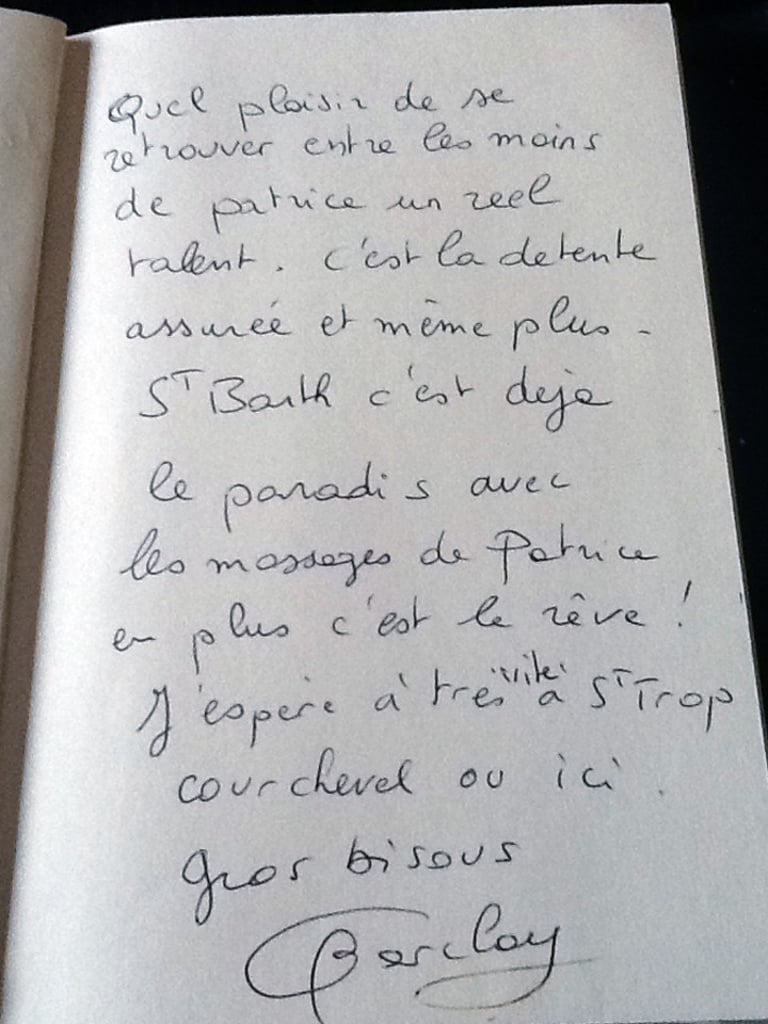 Quel plaisir de se
retrouver entre les mains
de patrice un reel
talent. c'est la detente
assurée et même plus -
ST Barth c'est deja
le paradis avec
les massages de Patrice
en plus c'est le rêve !
J'espère à très "vite" a ST Trop
courchevel ou ici.
Gros bisous
Barclay